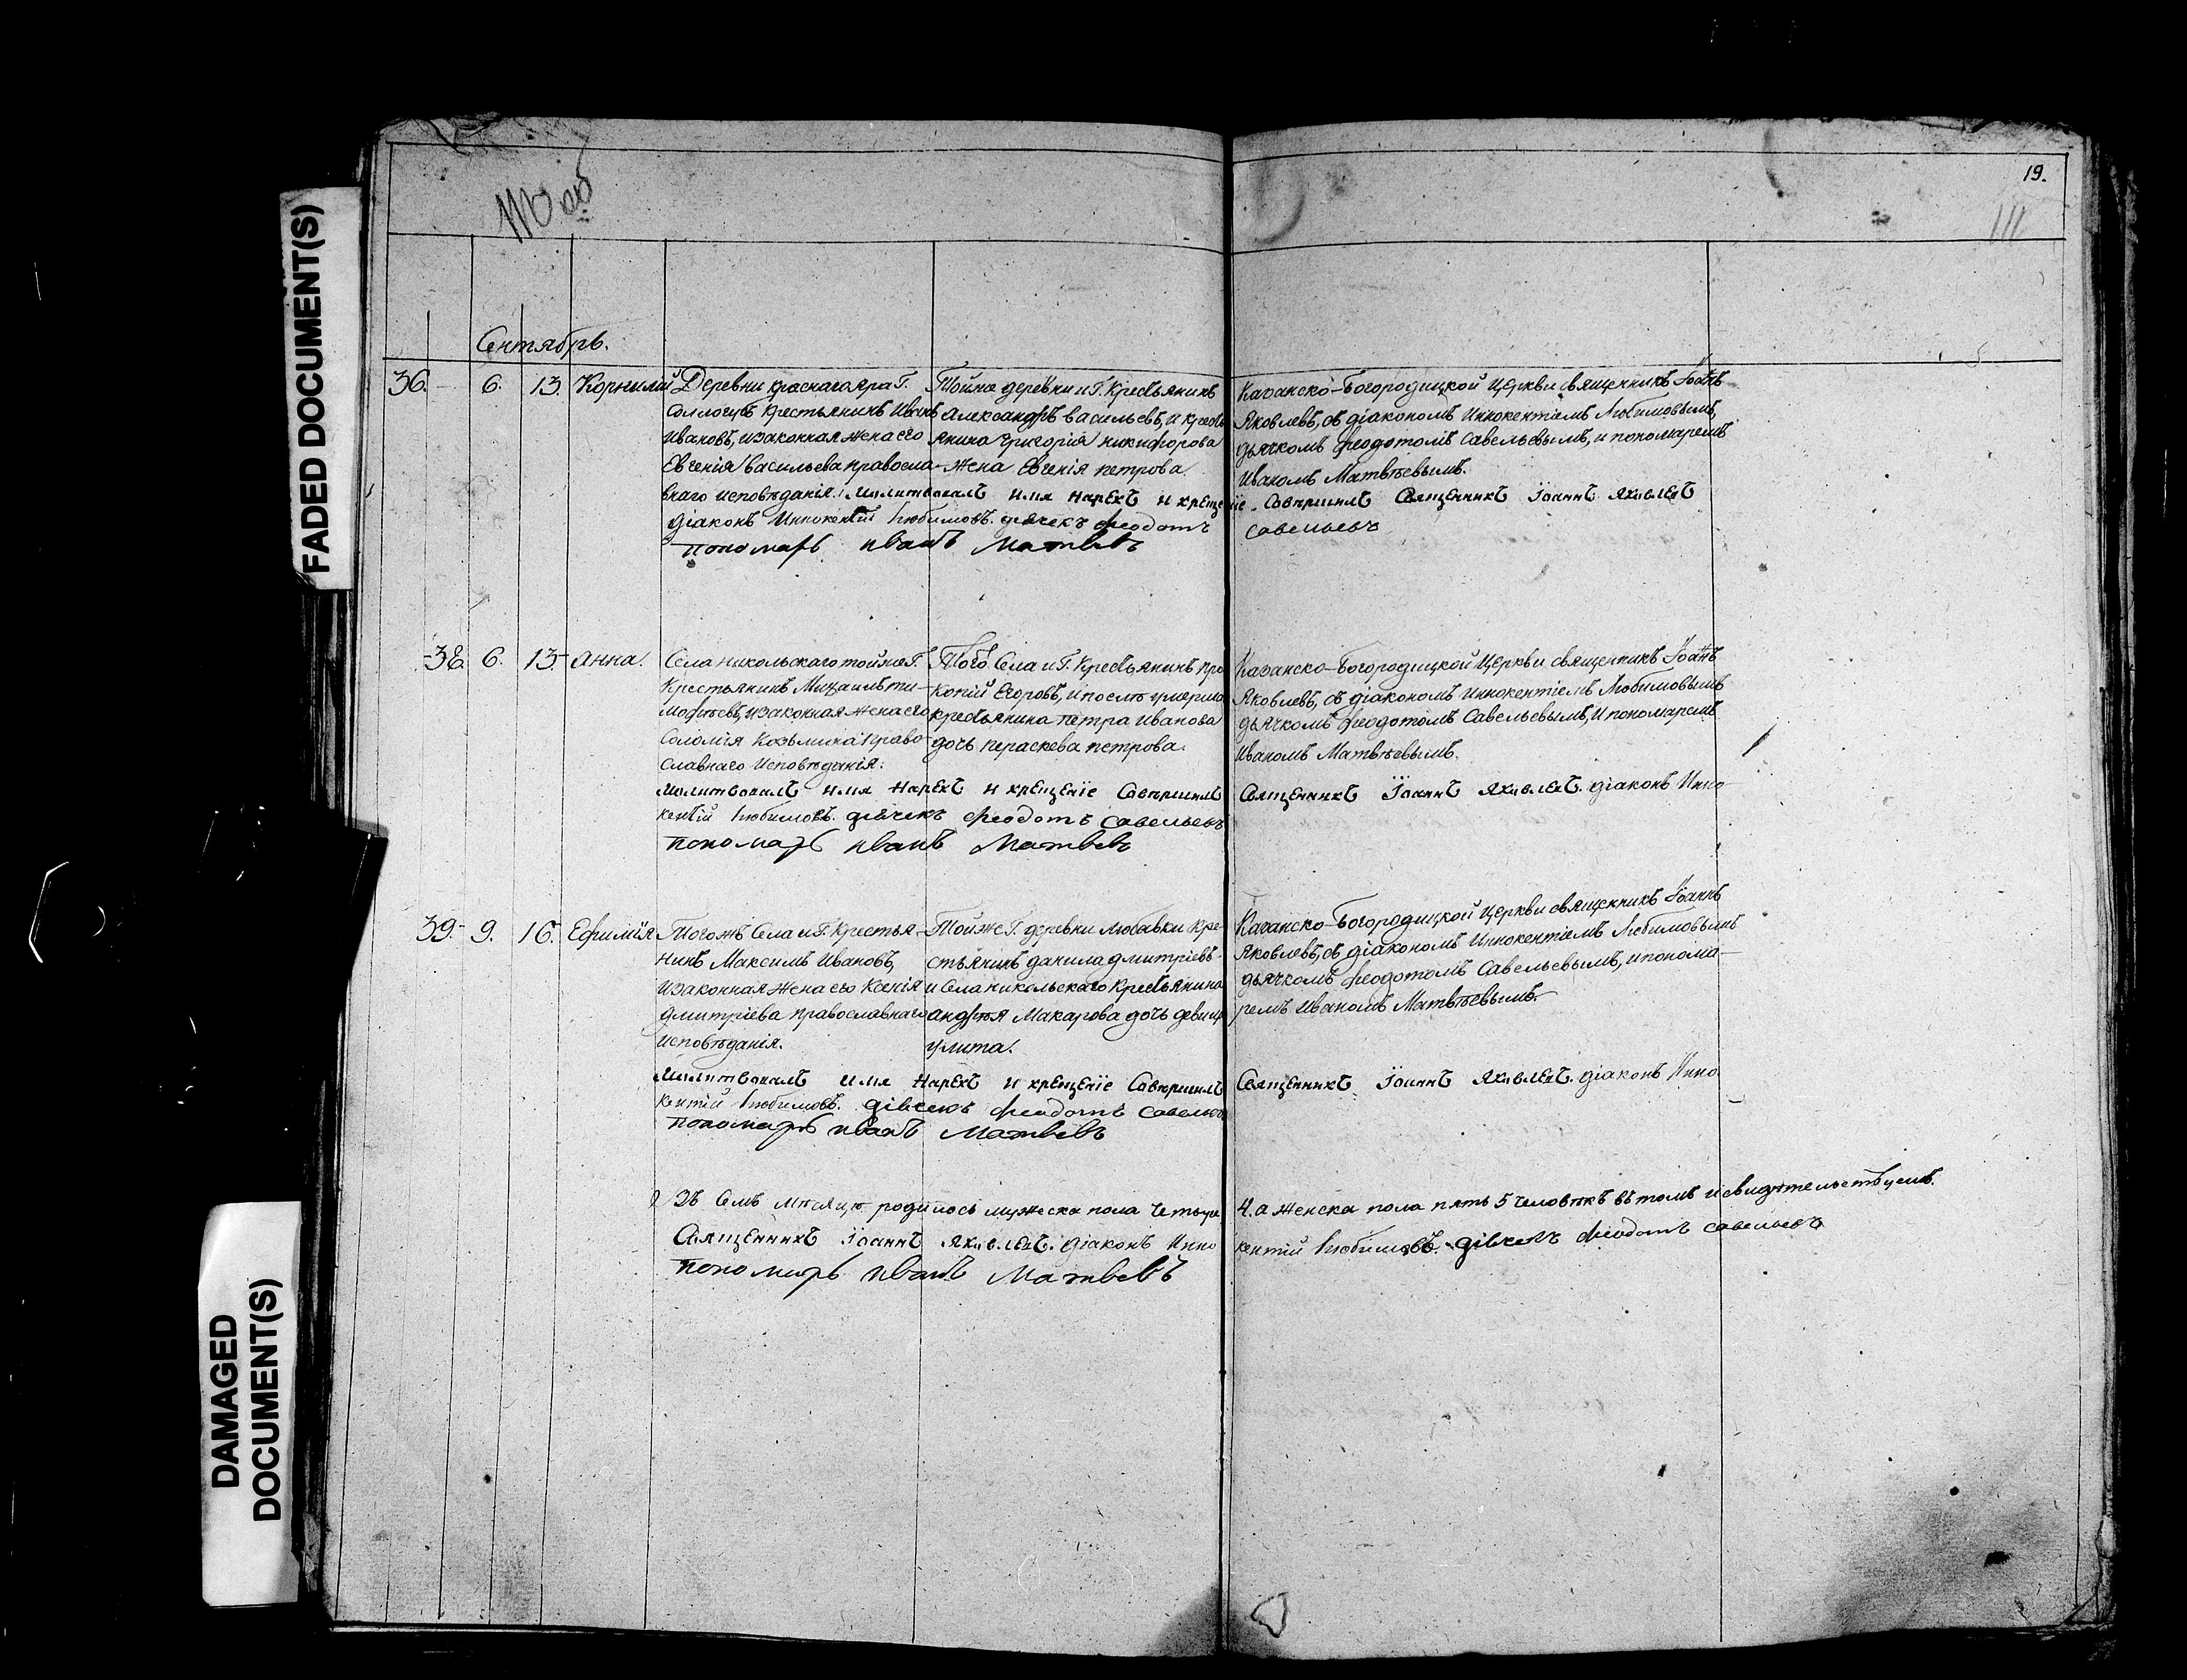 FADED DOCUMENT(S)
DAMAGED DOCUMENT(S)
19.
111
Сентябрь.
36. 6. 13. Корнилий
Деревни краснаго яра Г.
Соллогубъ Крестьянинъ Иванъ
Ивановъ, изаконная жена его
Евгенія Васильева правосла-
внаго исповѣданія.
Тойже деревни и Г. Крестьянинъ
Александръ васильевъ, и крестъ
янина Григорія Никифорова
жена Евгенія петрова
Казанско-Богородицкой Церкви священникъ Іоаннъ
Яковлевъ, съ діакономъ Иннокентіемъ Любимовымъ,
дьячкомъ Феодотомъ Савельевымъ, и пономаремъ
Иваномъ Матвѣевымъ.
Молитвовалъ имя нарекъ и крещеніе Совершилъ Священникъ Іоаннъ Яковлевъ
діаконъ Иннокентій Любимовъ. дьячекъ Феодотъ Савельевъ
пономарь иванъ Матвевъ
38. 6. 13. Анна.
Села никольскаго тойже Г.
Крестьянинъ Михаилъ ти-
мофѣевъ, изаконная жена его
Соломія Козьмина право-
славнаго исповѣданія.
Того Села и Г. Крестьянинъ про
копій Егоровъ, и послѣ умерша
крестьянина петра Иванова
дочь пераскева петрова.
Казанско-Богородицкой Церкви священникъ Іоаннъ
Яковлевъ, съ діакономъ Иннокентіемъ Любимовымъ
дьячкомъ Феодотомъ Савельевымъ, и пономаремъ
Иваномъ Матвѣевымъ.
Молитвовалъ имя нарекъ и крещеніе Совершилъ Священникъ Іоаннъ Яковлевъ. діаконъ Инно
кентій Любимовъ. діячекъ Феодотъ Савельевъ
пономарь иванъ Матвевъ
39. 9. 16. Ефимія
Тогожъ Села и Г. Крестья-
нинъ Максимъ Ивановъ,
изаконная жена его Ксенія
дмитріева православнаго
исповѣданія.
Тойже Г. деревни Любавки Кре-
стьянинъ данила дмитріевъ
и Села никольскаго Крестьянина
андрѣя Макарова дочь девица
улита.
Казанско-Богородицкой Церкви священникъ Іоаннъ
Яковлевъ, съ діакономъ Иннокентіемъ Любимовымъ
дьячкомъ Феодотомъ Савельевымъ, и понома-
ремъ Иваномъ Матвѣевымъ.
Молитвовалъ имя нарекъ и крещеніе Совершилъ Священникъ Іоаннъ Яковлевъ. діаконъ Инно
кентій Любимовъ. діячекъ Феодотъ Савельевъ
пономарь иванъ Матвевъ
Въ Семъ мѣсяцѣ родилось мужеска пола четыре 4. а женска пола пять 5 человѣкъ въ томъ и свидѣтельствуемъ.
Священникъ Іоаннъ Яковлевъ. діаконъ Инно кентій Любимовъ. діячекъ Феодотъ Савельевъ
пономарь иванъ Матвевъ